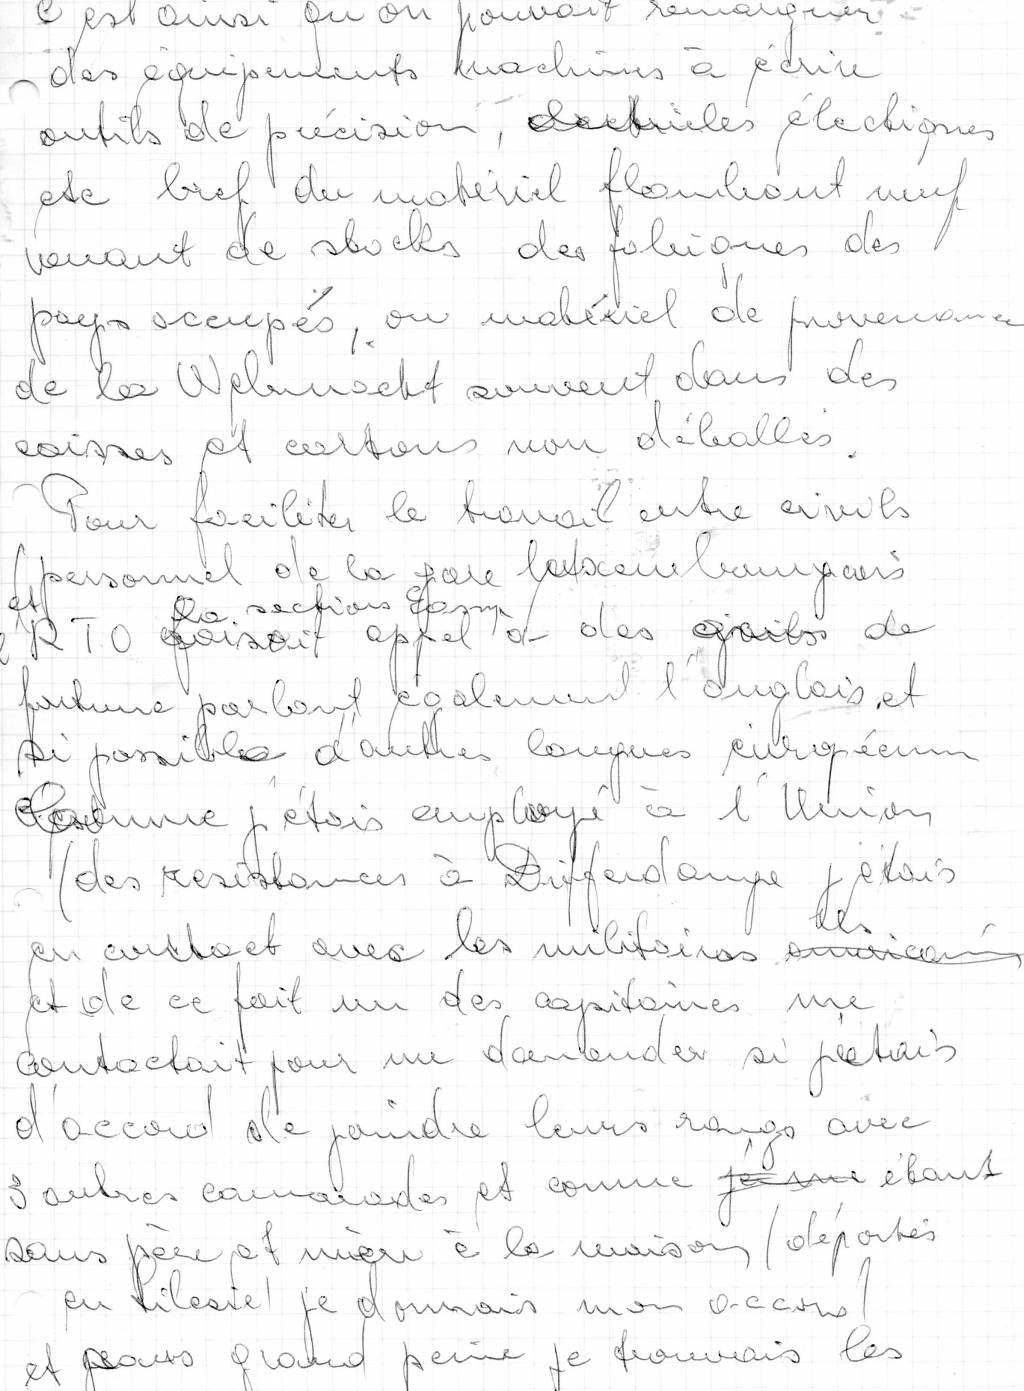 C'est ainsi qu'on pouvait remarquer
des équipements machines à écrire
outils de précision, électriques
etc bref du matériel flambant neuf
venant de stocks des fabriques des
pays occupés, ou matériel de provenance
de la Wehrmacht souvent dans des
caisses et cartons non déballés.
Pour faciliter le travail entre civils
(personnel de la gare luxembourgeois
et la section
RTO faisait appel à des de
fortune parlant également l'anglais et
si possible d'autres langues européenn
Comme j'étais employé à l'Union
(des resistances à Differdange j'étais
en contact avec les militaires américains
et de ce fait un des capitaines me
contactait pour me demander si j'étais
d'accord de joindre leurs rangs avec
3 autres camarades et comme étant
sans père et mère à la maison (déportés
en Silesie) je donnais mon accord
et sans grand peine je trouvais les